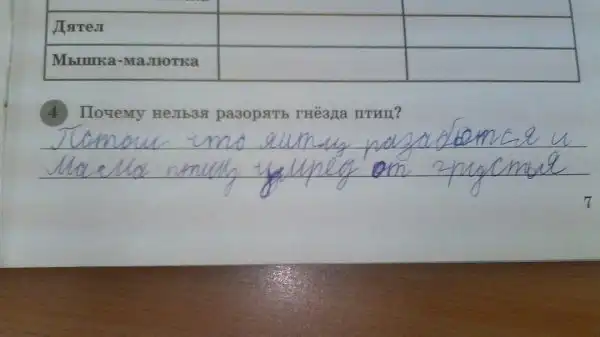 Дятел
Мышка-малютка
4 Почему нельзя разорять гнёзда птиц?
Потому что разабются и
мама птиц умрёд от грустья
7